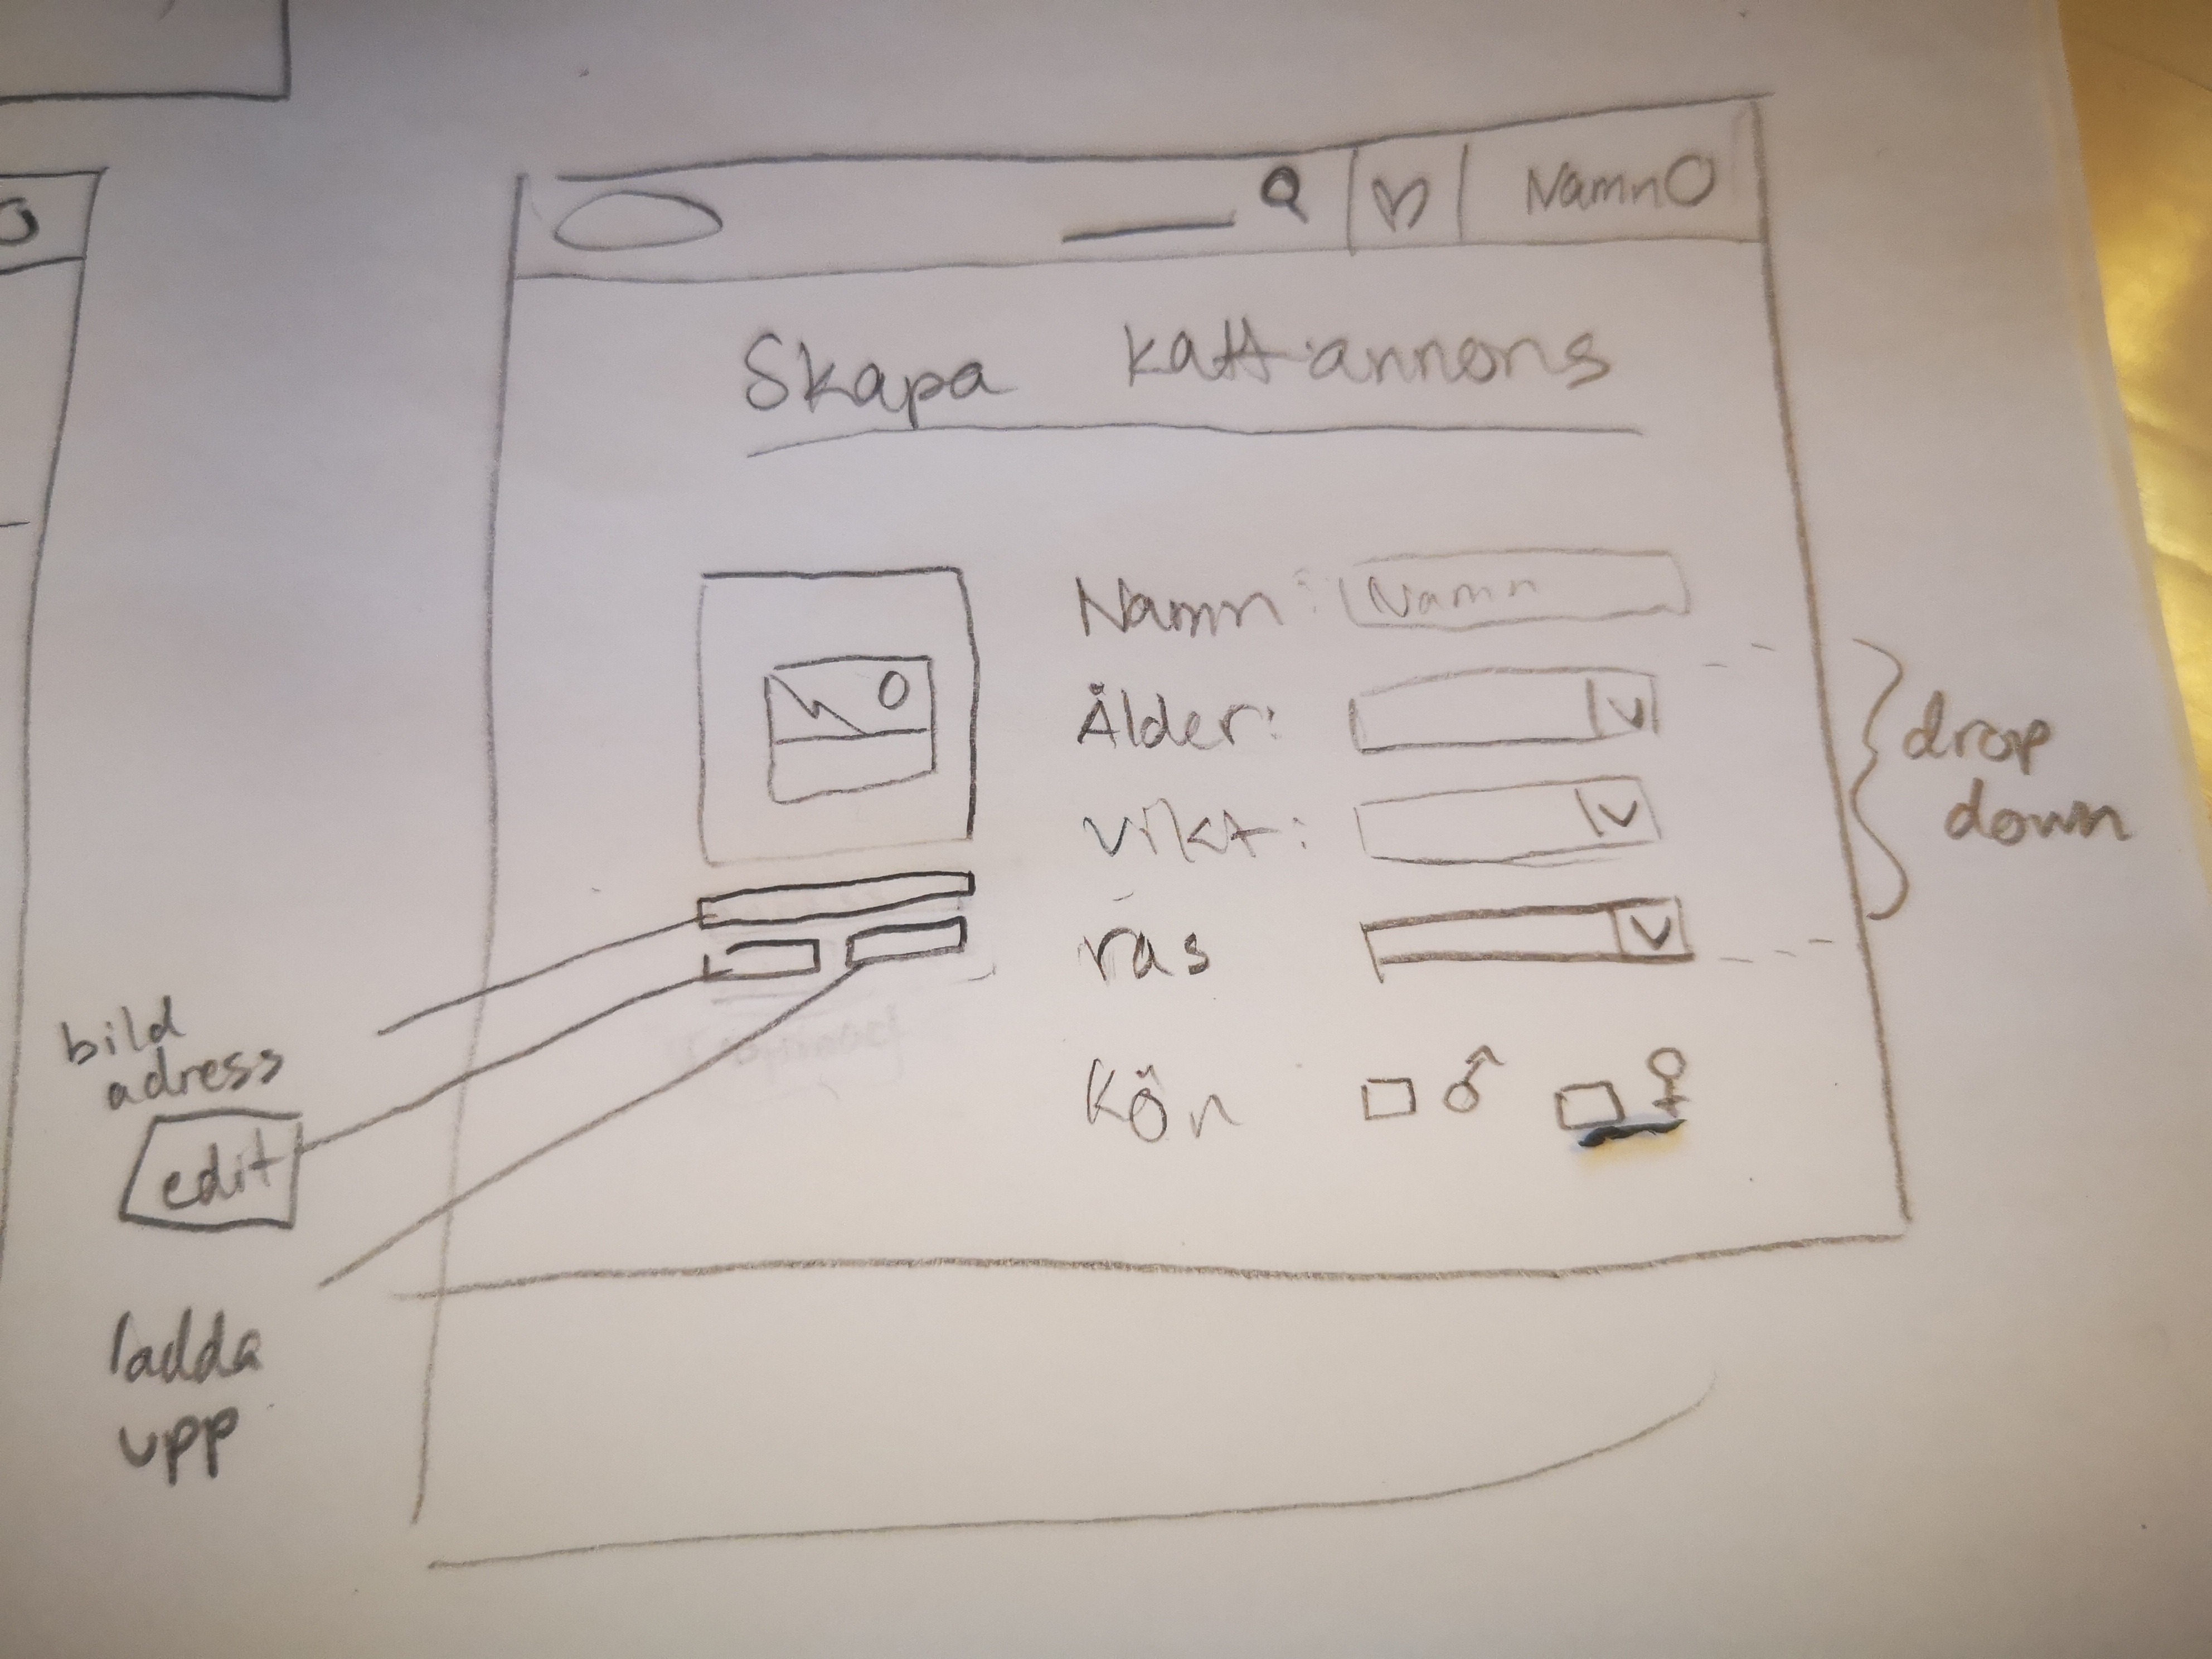 Namn
Skapa katt annons
Namn: Namn
Ålder:
Vikt:
ras
Kön ♂ ♀
drop
down
bild
adress
edit
ladda
upp